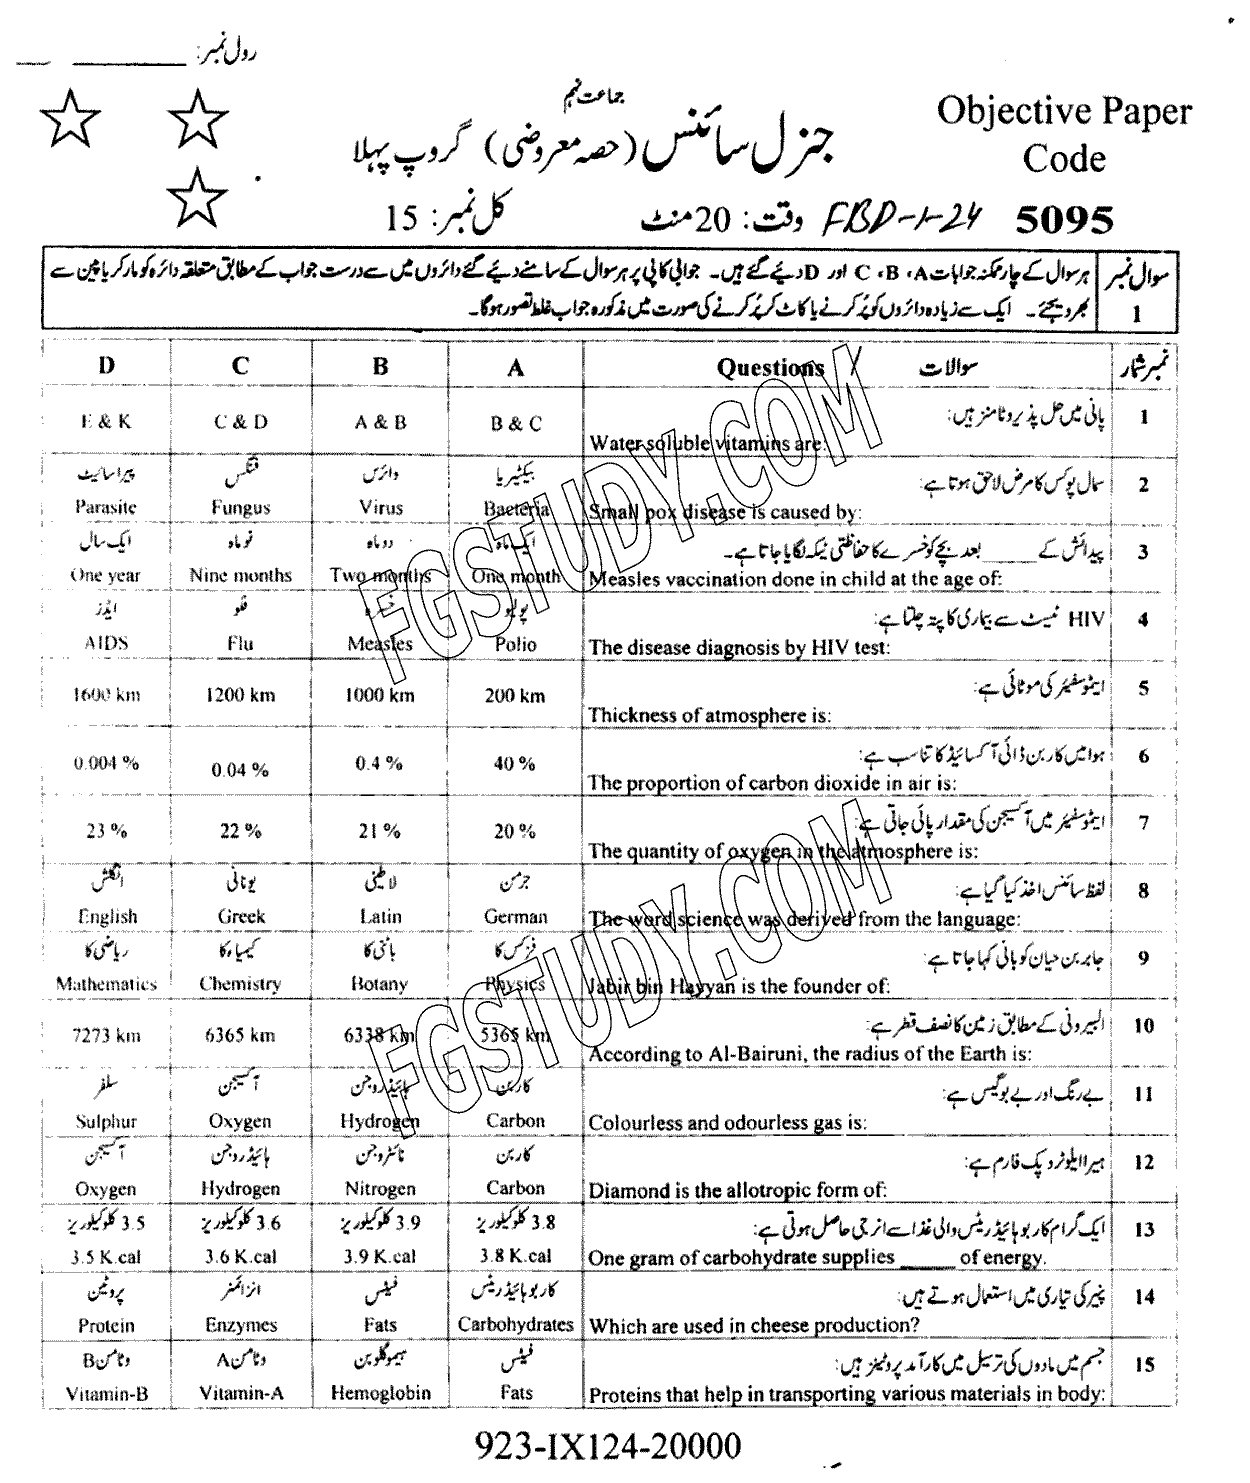 رول نمبر: ________ __
جماعت نہم
Objective Paper
Code
5095
جنرل سائنس (حصہ معروضی) گروپ پہلا
FBD-1-24
وقت: 20 منٹ
کل نمبر: 15
سوال نمبر 1
ہر سوال کے چار ممکنہ جوابات A، B، C اور D دیئے گئے ہیں۔ جوابی کاپی پر ہر سوال کے سامنے دیئے گئے دائروں میں سے درست جواب کے مطابق متعلقہ دائرہ کو مارکر یا پین سے
بھر دیجئے۔ ایک سے زیادہ دائروں کو پُر کرنے یا کاٹ کر پُر کرنے کی صورت میں مذکورہ جواب غلط تصور ہوگا۔
D C B A Questions / سوالات نمبر شمار
پانی میں حل پذیر وٹامنز ہیں: 1
E & K C & D A & B B & C
Water soluble vitamins are:
پیراسائیٹ فنگس وائرس بیکٹیریا سمال پوکس کا مرض لاحق ہوتا ہے: 2
Parasite Fungus Virus Bacteria Small pox disease is caused by:
ایک سال نو ماہ دو ماہ ایک ماہ پیدائش کے _____ بعد بچے کو خسرے کا حفاظتی ٹیکہ لگایا جاتا ہے۔ 3
One year Nine months Two months One month Measles vaccination done in child at the age of:
ایڈز فلو خسرہ پولیو HIV ٹیسٹ سے بیماری کا پتہ چلتا ہے: 4
AIDS Flu Measles Polio The disease diagnosis by HIV test:
ایٹموسفیئر کی موٹائی ہے: 5
1600 km 1200 km 1000 km 200 km
Thickness of atmosphere is:
ہوا میں کاربن ڈائی آکسائیڈ کا تناسب ہے: 6
0.004 % 0.04 % 0.4 % 40 %
The proportion of carbon dioxide in air is:
ایٹموسفیئر میں آکسیجن کی مقدار پائی جاتی ہے: 7
23 % 22 % 21 % 20 %
The quantity of oxygen in the atmosphere is:
انگلش یونانی لاطینی جرمن لفظ سائنس اخذ کیا گیا ہے: 8
English Greek Latin German The word science was derived from the language:
ریاضی کا کیمیاء کا باٹنی کا فزکس کا جابر بن حیان کو بانی کہا جاتا ہے: 9
Mathematics Chemistry Botany Physics Jabir bin Hayyan is the founder of:
البیرونی کے مطابق زمین کا نصف قطر ہے: 10
7273 km 6365 km 6338 km 5365 km
According to Al-Bairuni, the radius of the Earth is:
سلفر آکسیجن ہائیڈروجن کاربن بے رنگ اور بے بو گیس ہے: 11
Sulphur Oxygen Hydrogen Carbon Colourless and odourless gas is:
آکسیجن ہائیڈروجن نائٹروجن کاربن ہیرا ایلوٹروپک فارم ہے: 12
Oxygen Hydrogen Nitrogen Carbon Diamond is the allotropic form of:
3.5 کلوکیلوریز 3.6 کلوکیلوریز 3.9 کلوکیلوریز 3.8 کلوکیلوریز ایک گرام کاربوہائیڈریٹس والی غذا سے انرجی حاصل ہوتی ہے: 13
3.5 K.cal 3.6 K.cal 3.9 K.cal 3.8 K.cal One gram of carbohydrate supplies _____ of energy.
پروٹین انزائمز فیٹس کاربوہائیڈریٹس پنیر کی تیاری میں استعمال ہوتے ہیں: 14
Protein Enzymes Fats Carbohydrates Which are used in cheese production?
وٹامن B وٹامن A ہیموگلوبن فیٹس جسم میں مادوں کی ترسیل میں کارآمد پروٹینز ہیں: 15
Vitamin-B Vitamin-A Hemoglobin Fats Proteins that help in transporting various materials in body:
923-IX124-20000
FGSTUDY.COM
FGSTUDY.COM